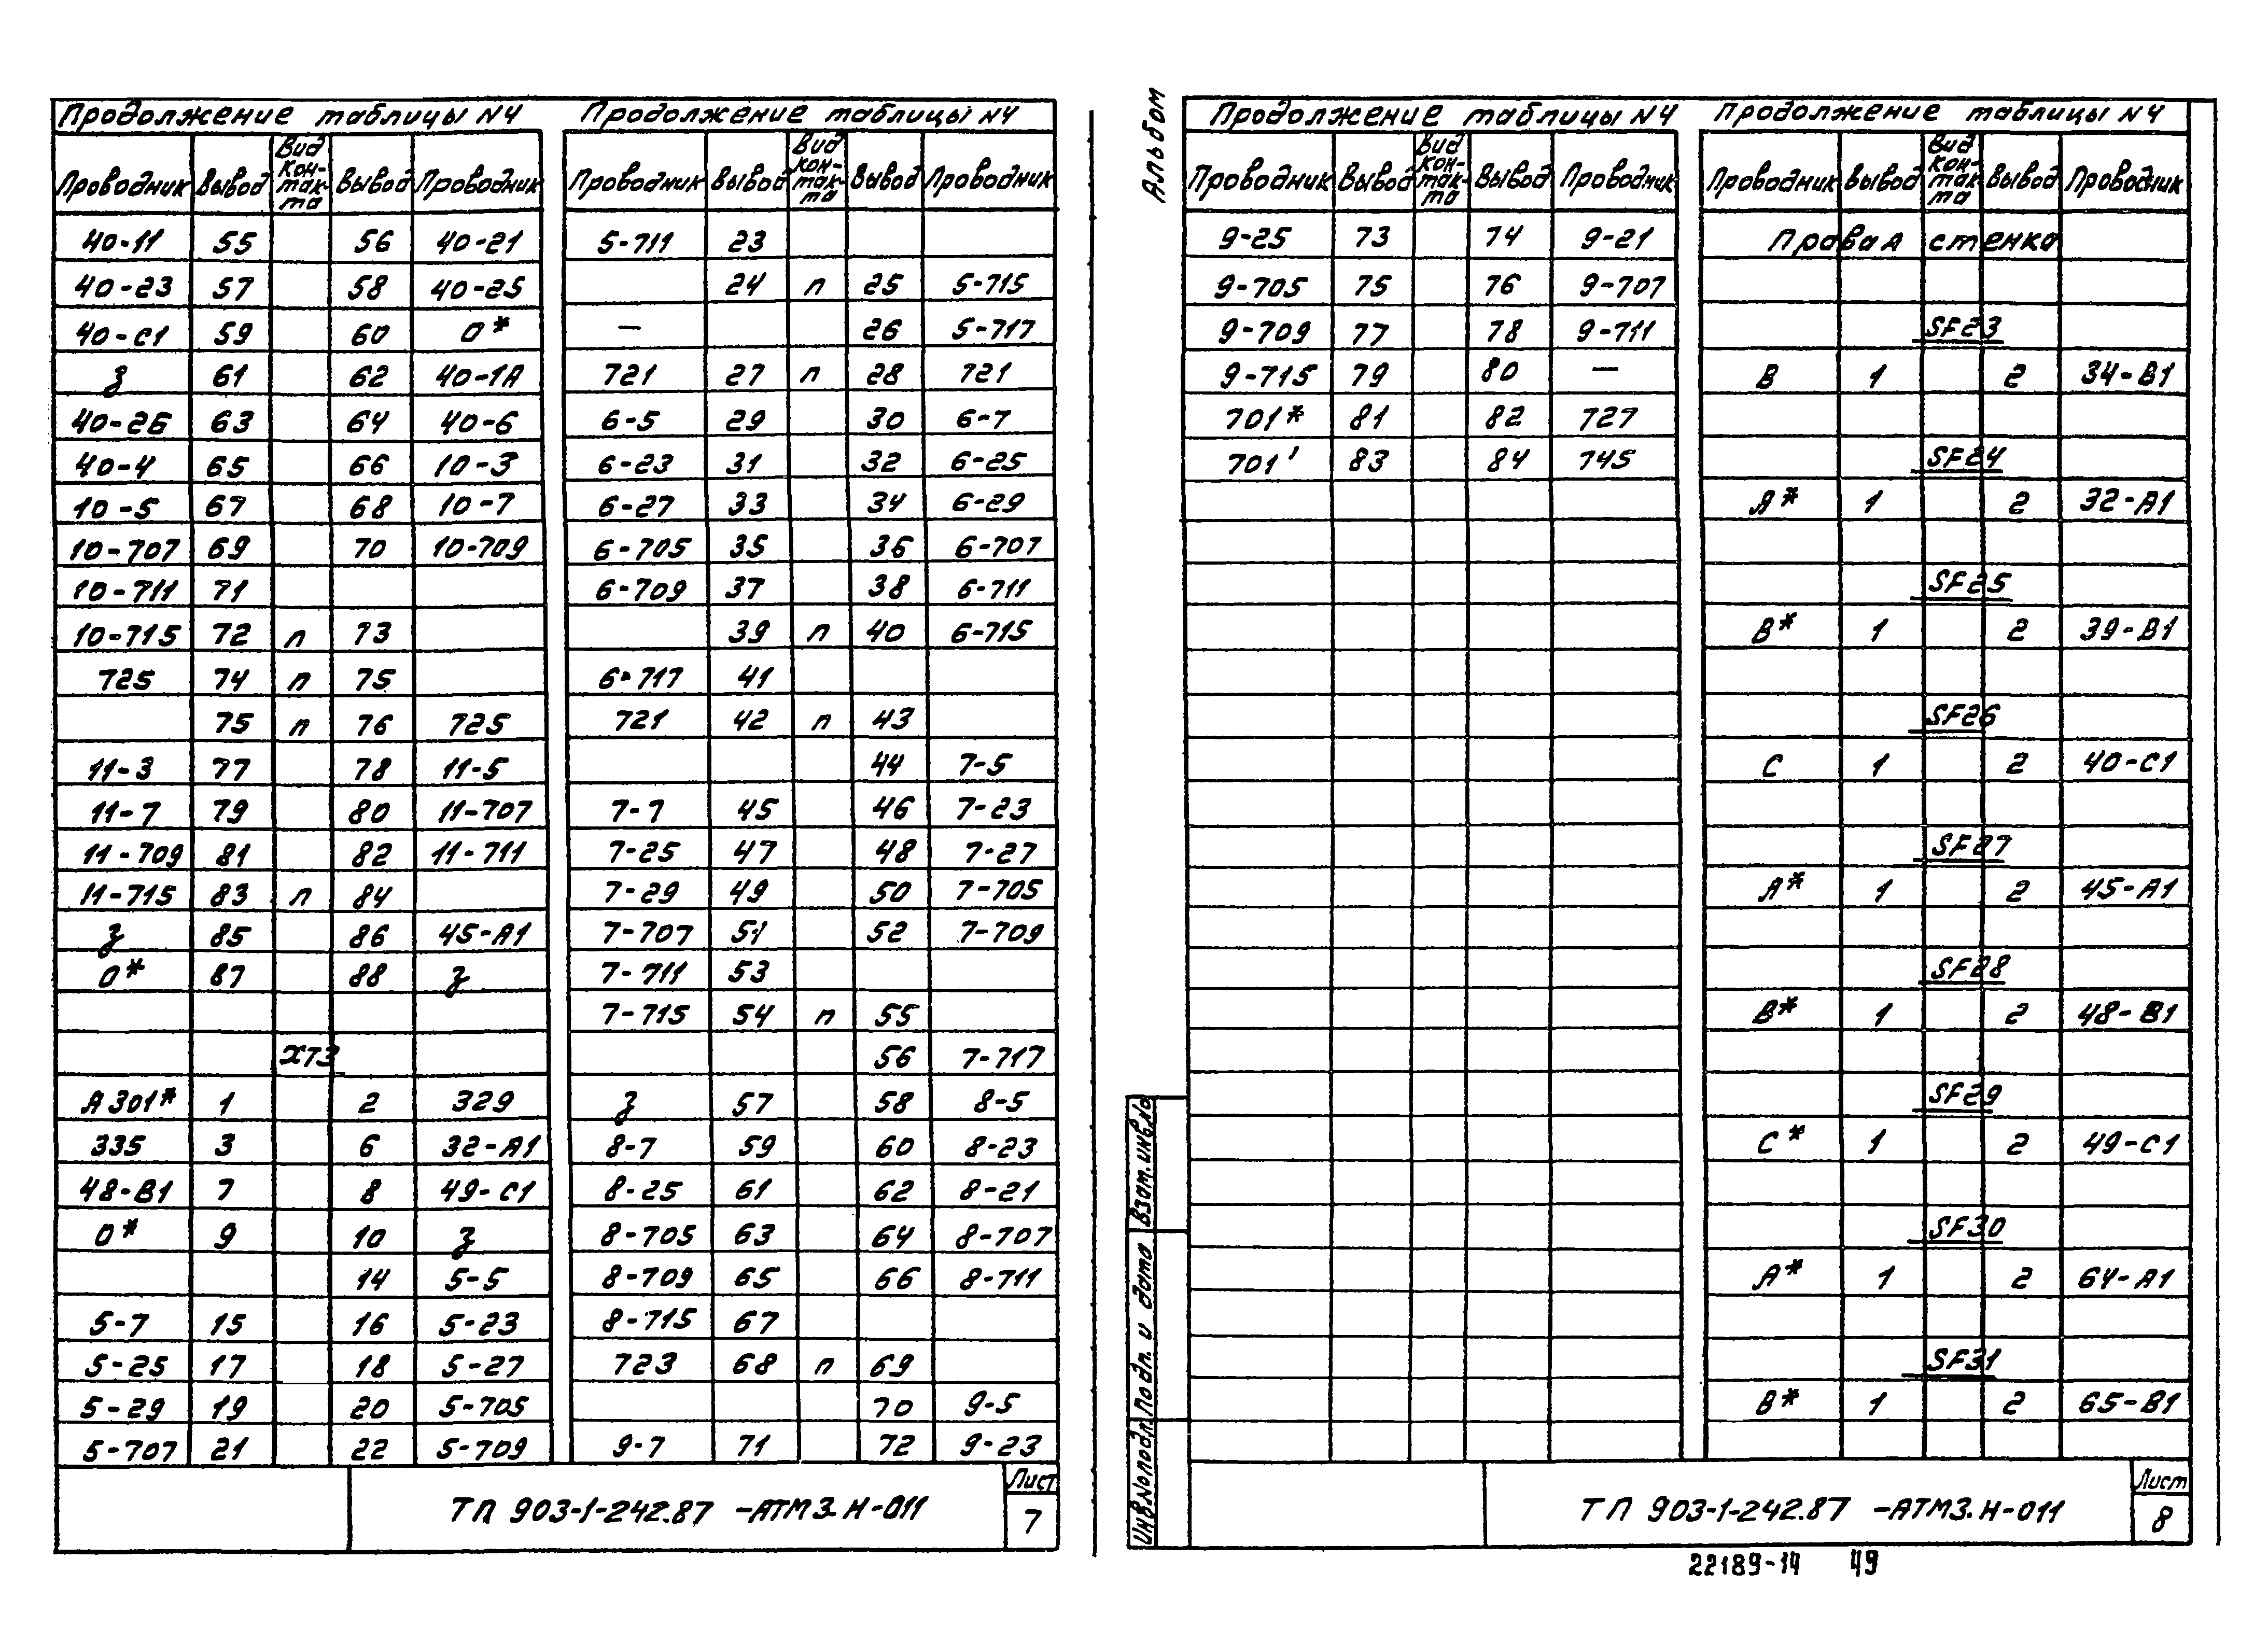 Продолжение таблицы N4
Проводник Вывод Вид кон-так-та Вывод Проводник
40-11 55 56 40-21
40-23 57 58 40-25
40-С1 59 60 0*
З 61 62 40-1А
40-2Б 63 64 40-6
40-4 65 66 10-3
10-5 67 68 10-7
10-707 69 70 10-709
10-711 71
10-715 72 п 73
725 74 п 75
75 п 76 725
11-3 77 78 11-5
11-7 79 80 11-707
11-709 81 82 11-711
11-715 83 п 84
З 85 86 45-А1
0* 87 88 З
ХТ3
А301* 1 2 329
335 3 6 32-А1
48-В1 7 8 49-С1
0* 9 10 З
14 5-5
5-7 15 16 5-23
5-25 17 18 5-27
5-29 19 20 5-705
5-707 21 22 5-709
Продолжение таблицы N4
Проводник Вывод Вид кон-так-та Вывод Проводник
5-711 23
24 п 25 5-715
— 26 5-717
721 27 п 28 721
6-5 29 30 6-7
6-23 31 32 6-25
6-27 33 34 6-29
6-705 35 36 6-707
6-709 37 38 6-711
39 п 40 6-715
6-717 41
721 42 п 43
44 7-5
7-7 45 46 7-23
7-25 47 48 7-27
7-29 49 50 7-705
7-707 51 52 7-709
7-711 53
7-715 54 п 55
56 7-717
З 57 58 8-5
8-7 59 60 8-23
8-25 61 62 8-21
8-705 63 64 8-707
8-709 65 66 8-711
8-715 67
723 68 п 69
70 9-5
9-7 71 72 9-23
ТП 903-1-242.87 -АТМ3.Н-011
Лист
7
Альбом
Продолжение таблицы N4
Проводник Вывод Вид кон-так-та Вывод Проводник
9-25 73 74 9-21
9-705 75 76 9-707
9-709 77 78 9-711
9-715 79 80 —
701* 81 82 727
701' 83 84 745
Продолжение таблицы N4
Проводник Вывод Вид кон-так-та Вывод Проводник
Правая стенка
SF23
В 1 2 34-В1
SF24
А* 1 2 32-А1
SF25
В* 1 2 39-В1
SF26
С 1 2 40-С1
SF27
А* 1 2 45-А1
SF28
В* 1 2 48-В1
SF29
С* 1 2 49-С1
SF30
А* 1 2 64-А1
SF31
В* 1 2 65-В1
Взам. инв. №
Подп. и дата
Инв. № подл.
ТП 903-1-242.87 -АТМ3.Н-011
Лист
8
22189-14 49